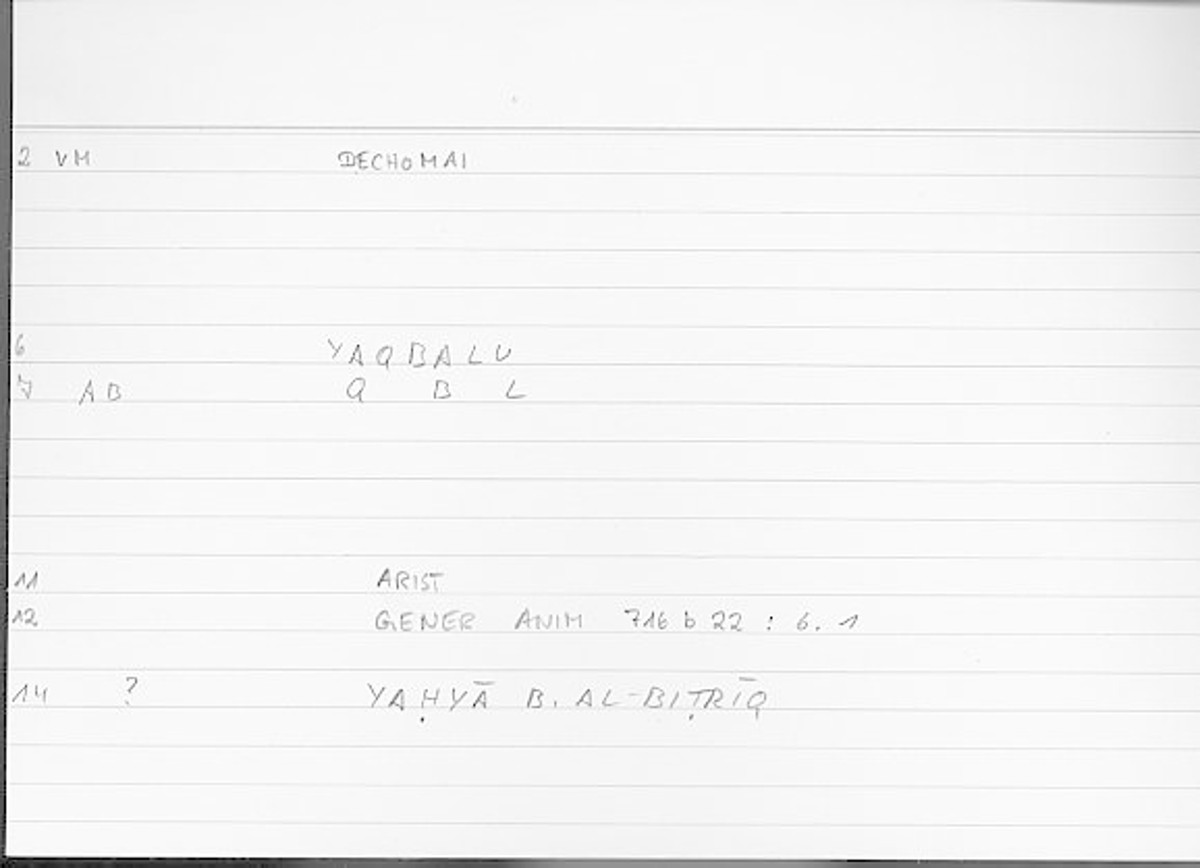 2 VM DECHOMAI
6 YAQBALU
7 AB Q B L
11 ARIST
12 GENER ANIM 716 b 22 : 6. 1
14 ? YAḤYĀ B. AL-BIṬRĪQ